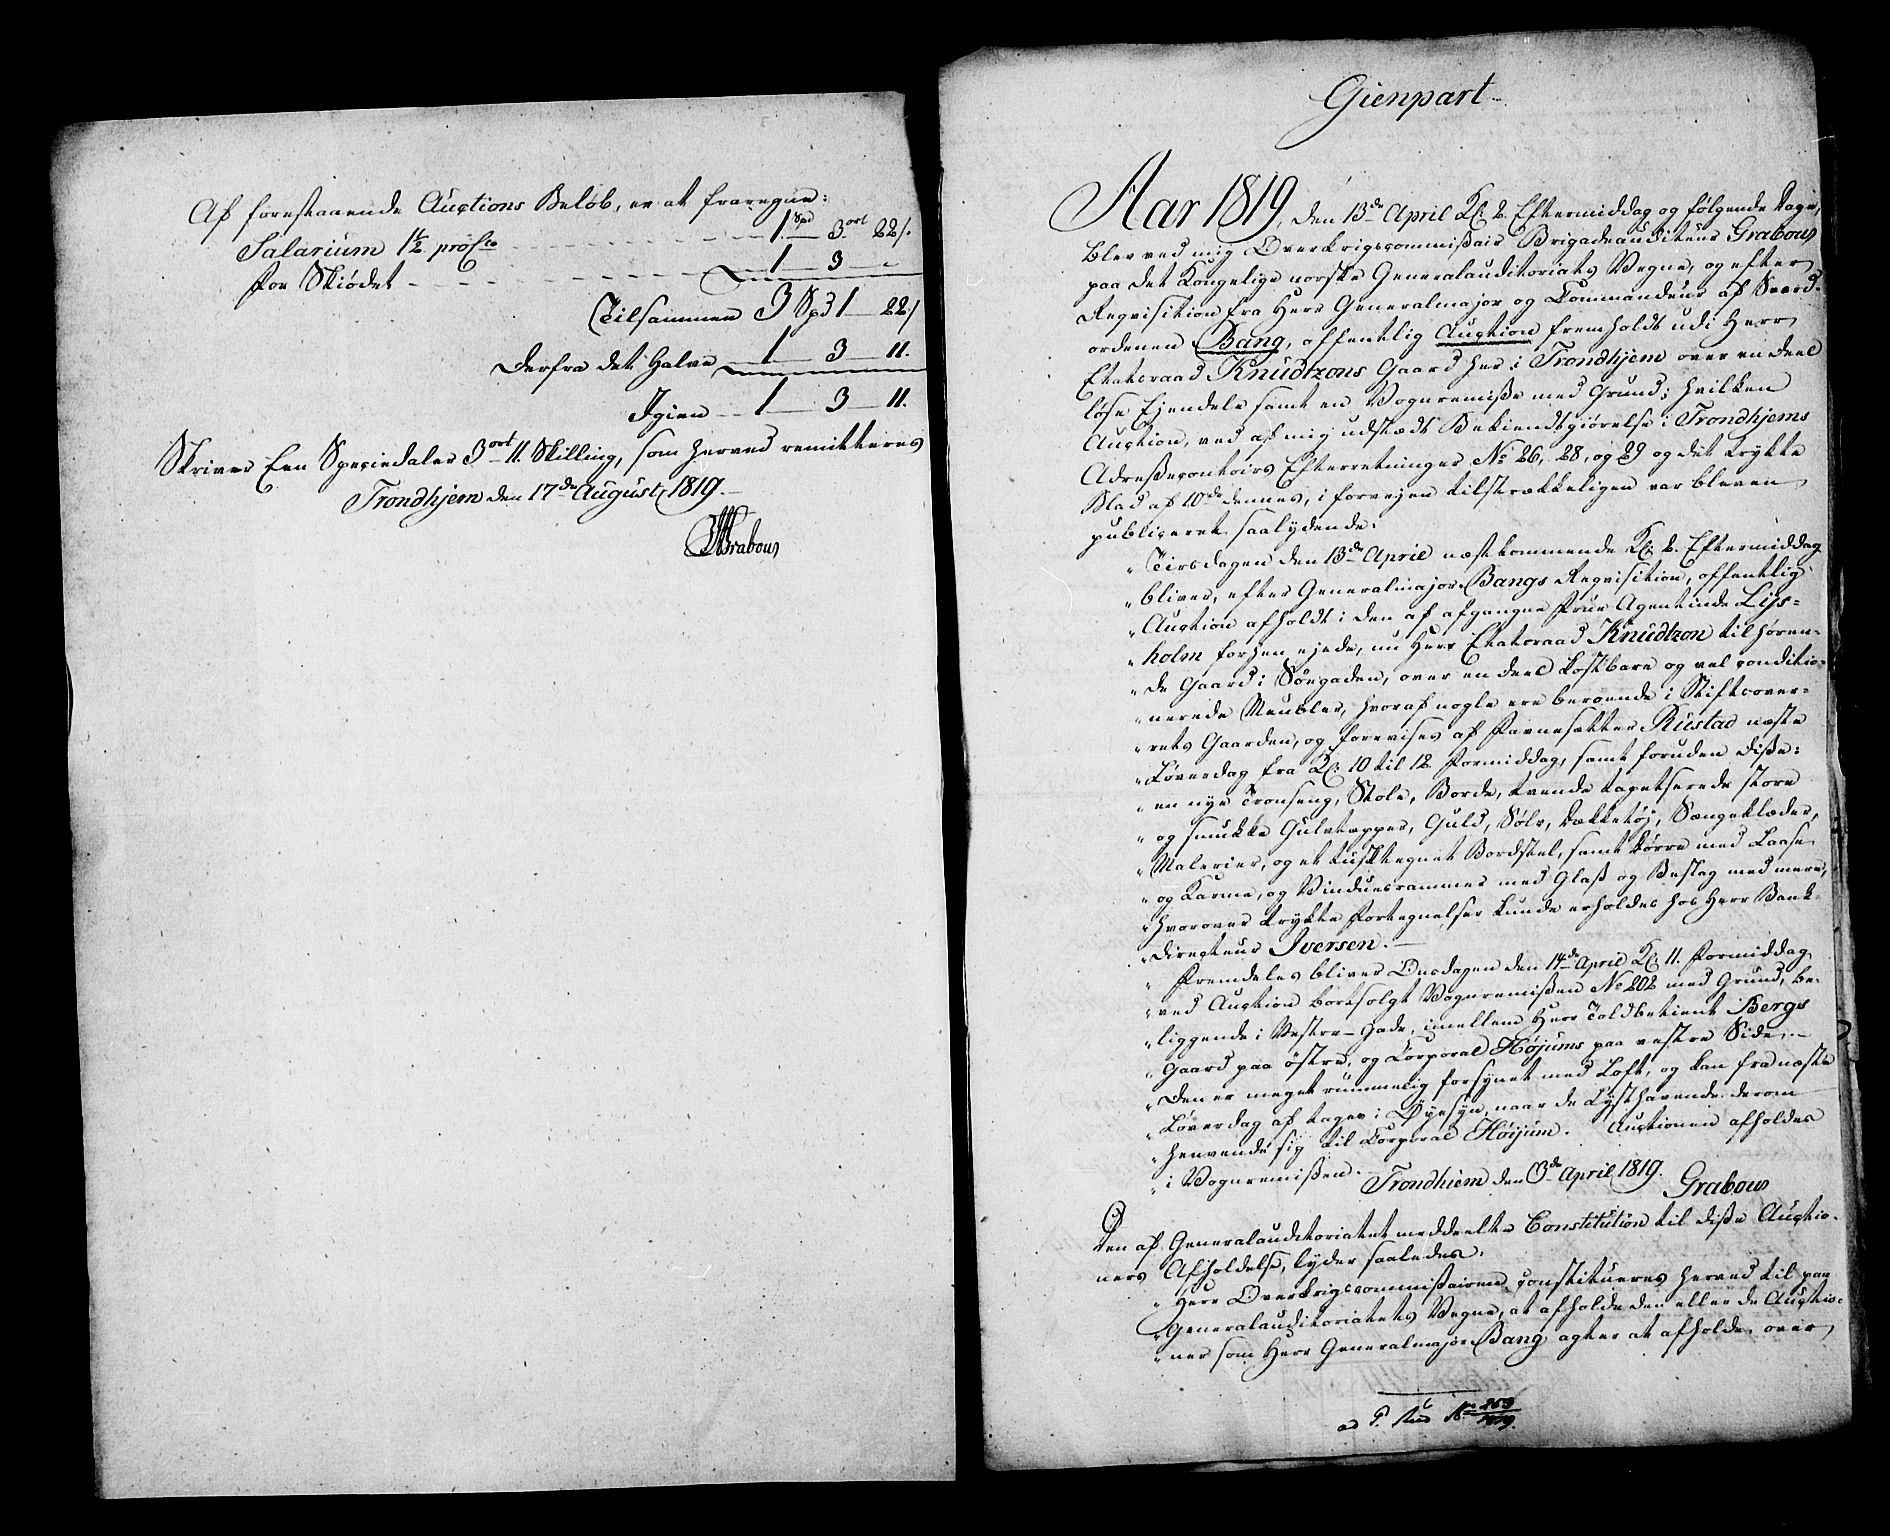 Af forestaaende Auctions Beløb, er at fraregne:
Salarium 1½ proCto - - - 1 Spd - 3 ort 22 s.
For Skiødet - - - 1 - 3 - "
Tilsammen 3 Spd 1 - 22 s
Derfra det Halve 1 - 3 - 11.
Igien - 1 - 3 - 11.
Skriver Een Speciedaler 3 ort 11. Skilling, som herved remitteres
Trondhjem den 17de August, 1819.
Grabow
Gienpart
Aar 1819, den 13de April Kl: 2. Eftermiddag og følgende Dage,
blev ved mig Overkrigscommißair Brigadeauditeur Grabow
paa det Kongelige norske Generalauditoriats Vegne, og efter
Reqvisition fra Herr Generalmajor og Commandeur af Sværd-
ordenen Bang, offentlig Auction fremholdt udi Herr
Etatsraad Knudtzons Gaard her i Trondhjem over en deel
løse Ejendele samt en Vognremiße med Grund; hvilken
Auction, ved af mig udstædt Bekiendtgiørelse i Trondhjems
Adreßecontoirs Efterretninger No 26, 28, og 29 og det trykte
Blad af 10de dennes, i forvejen tilstrækkeligen var bleven
publiceret saalydende:
„Tirsdagen den 13de April næstkommende Kl: 2. Eftermiddag
„bliver, efter Generalmajor Bangs Reqvisition, offentlig
„Auction afholdt i den af afgangne Frue Agentinde Lys-
„holm forhen ejede, nu Herr Etatsraad Knudtzon tilhøren-
„de Gaard i Søegaden, over en deel kostbare og vel conditio-
„nerede Meubler, hvoraf nogle ere beroende i Stiftsover-
„rets Gaarden, og forevises af Rustad næste
„Løverdag fra Kl: 10 til 12 Formiddag, samt foruden diße:
„en nye Tronseng, Stole, Borde, tvende tapetserede store
„og smukke Gulvtæpper, Guld, Sølv, Dækketøj, Sængeklæder,
„Malerier, og et tusktegnet Bordstel, samt Dørre med Laase
„og Karme, og Vinduesrammer med Glaß og Beslag med mere,
„hvorover trykte Fortegnelser kunde erholdes hos Herr Bank-
„directeur Iversen. -
„Fremdeles bliver Onsdagen den 14de April Kl: 11. Formiddag
„ved Auction bortsolgt Vognremißen No 202 med Grund, be-
„liggende i Vestre-Gade, imellem Herr Toldbetient Bergs
„Gaard paa østre, og Corporal Høijums paa vestre Side. -
„Den er meget rummelig forsynet med Loft, og kan fra næste
„Løverdag af tages i Øyesyn, naar de Lysthavende derom
„henvende sig til Corporal Høijum. Auctionen afholdes
„i Vognremißen. Trondhiem den 3de April 1819. Grabow
Den af Generalauditoriatet meddeelte Constitution til diße Auctio-
ners Afholdelse, lyder saaledes:
„Herr Overkrigscommißairen constitueres herved til paa
„Generalauditoriatets Vegne, at afholde den eller de Auctio-
„ner som Herr Generalmajor Bang agter at afholde over
ad No 259/1819.